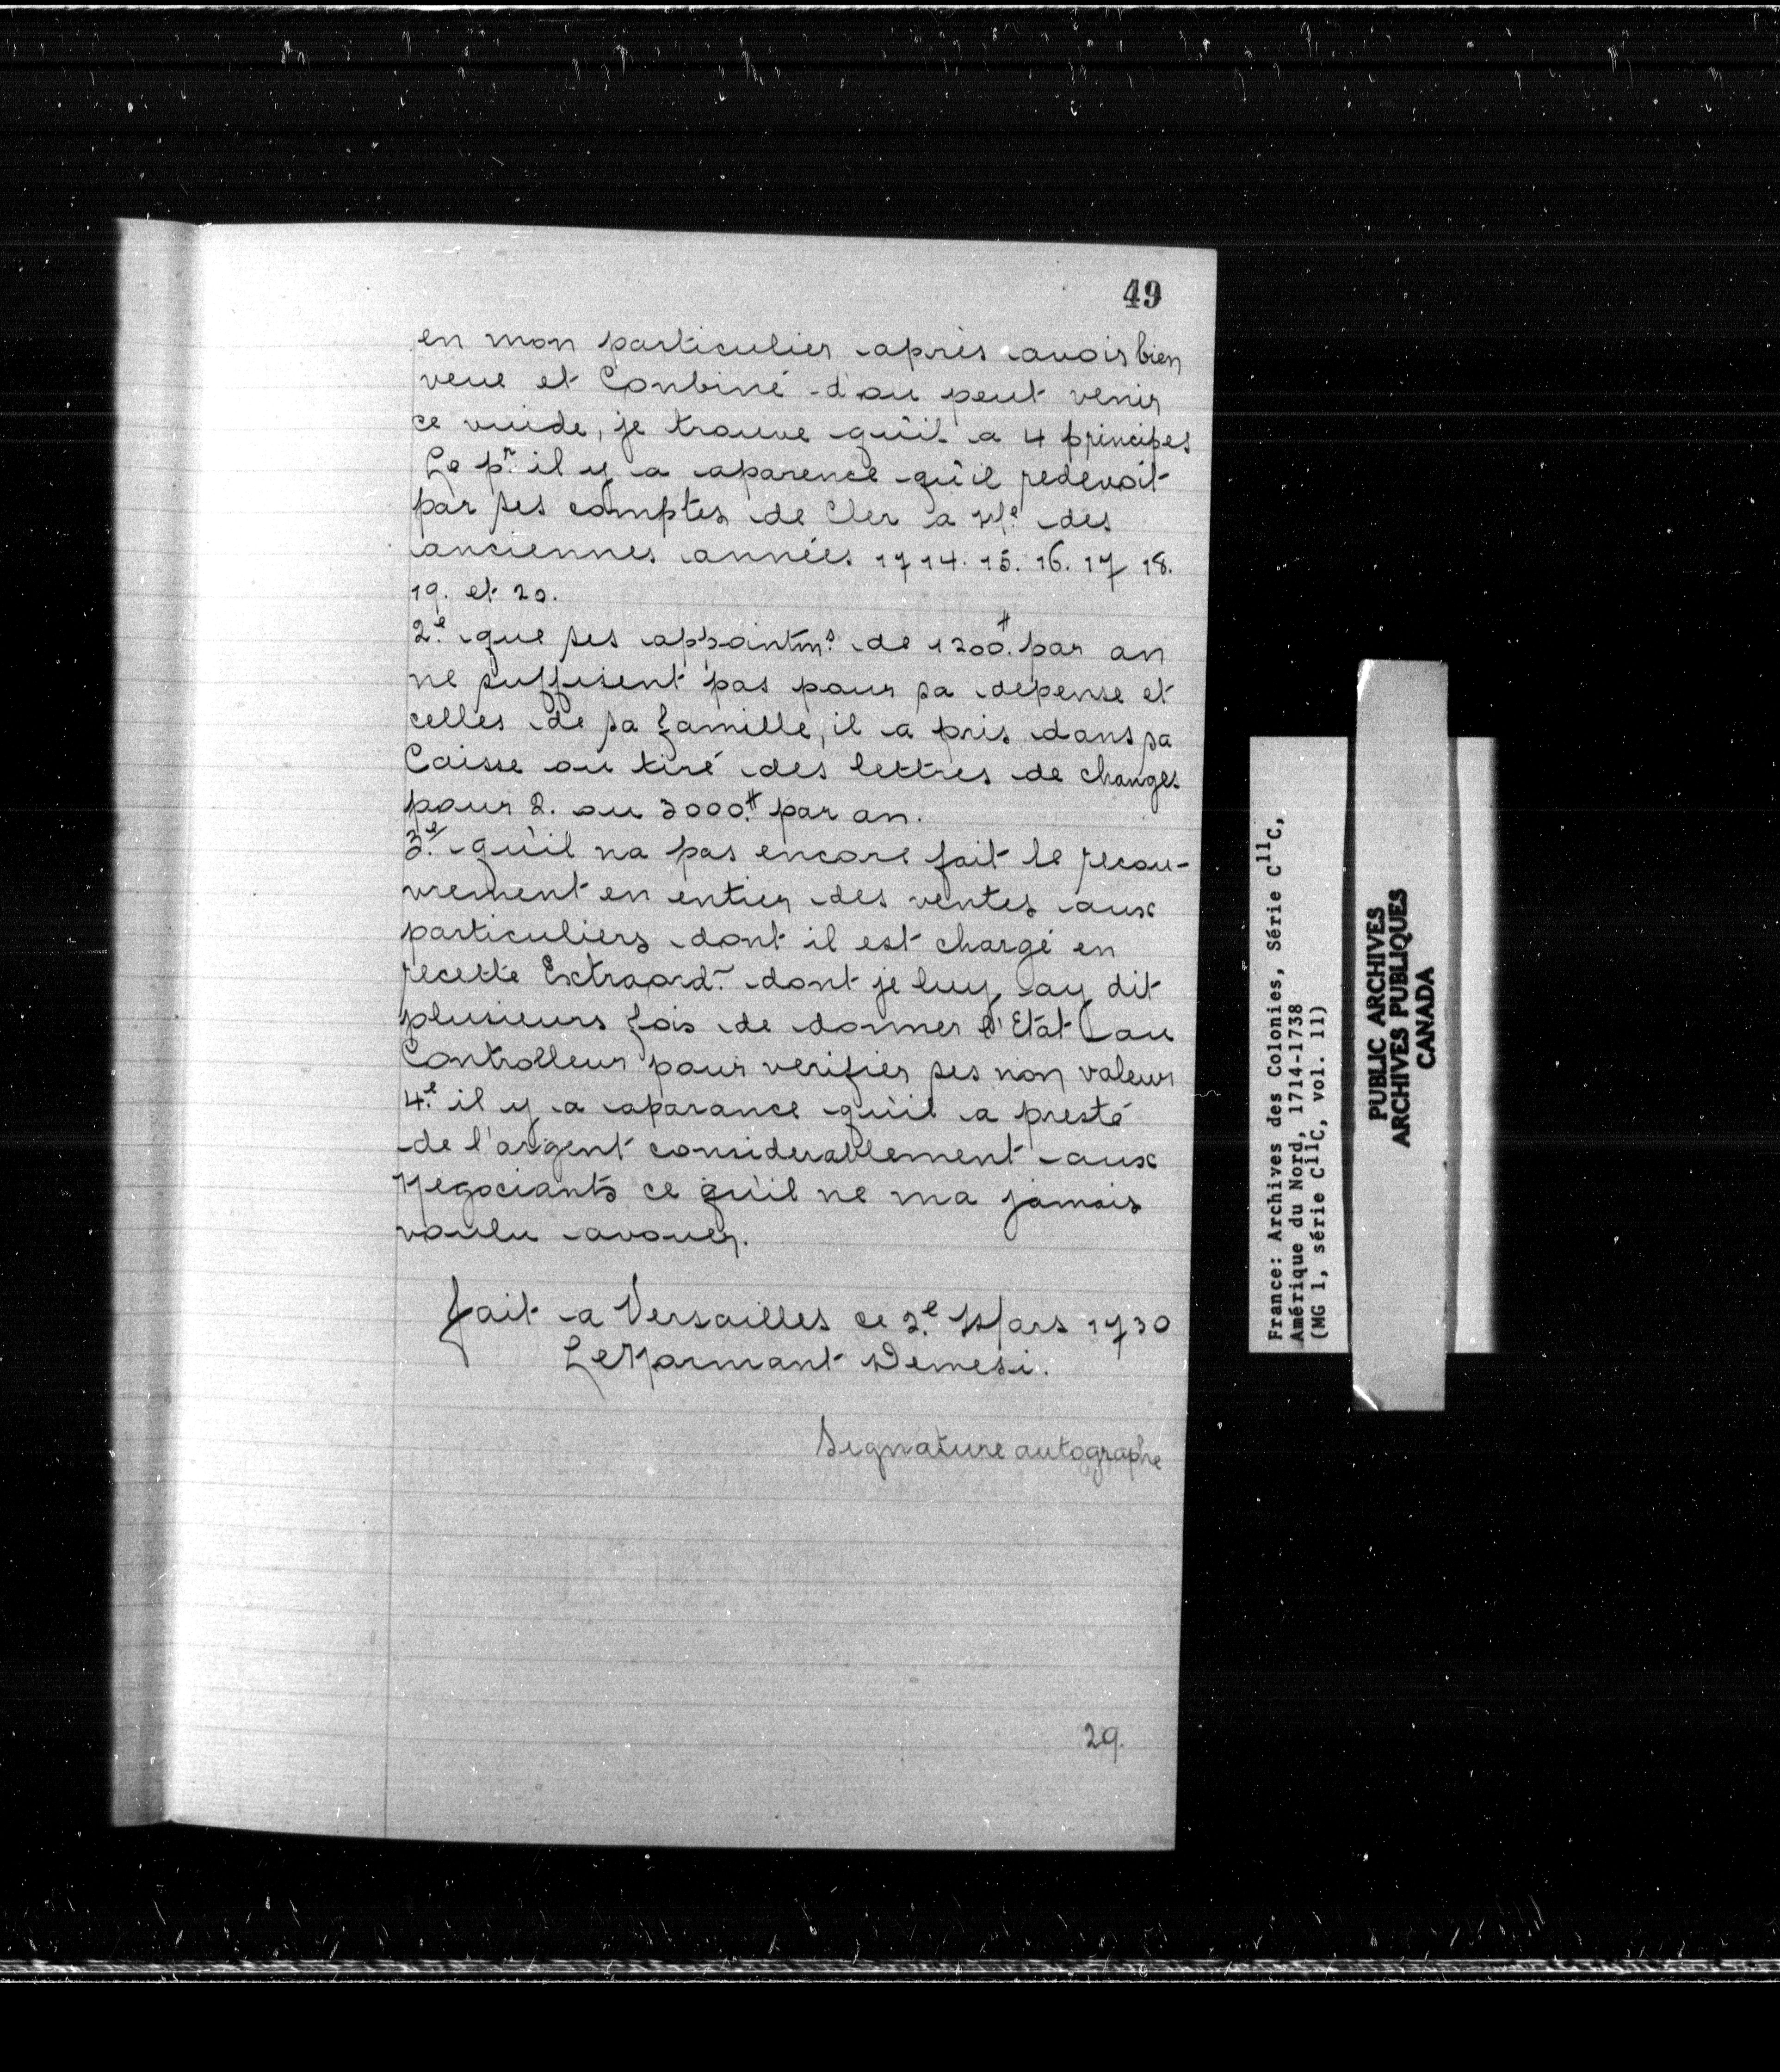 49
en mon particulier après avoir bien
veue et Conbiné d'ou peut venir
ce vuide, je trouve qu'il a 4 principes
Le pr. il y a aparence qu'il redevoit
par ses comptes de Cler a Me des
anciennes années 1714. 15. 16. 17 18.
19. et 20.
2.e que ses appointms. de 1200.# par an
ne suffisent pas pour sa depense et
celles de sa famille, il a pris dans sa
Caisse ou tiré des lettres de changes
pour 2. ou 3000.# par an.
3.e qu'il na pas encore fait le recou-
vrement en entier des ventes aux
particuliers dont il est chargé en
recette Extraord.re dont je luy ay dit
plusieurs fois de donner l'Etat au
Controlleur pour verifier ses non valeur
4.e il y a aparance qu'il a presté
de l'argent considerablement aux
Negociants ce qu'il ne ma jamais
voulu avouer.
fait a Versailles ce 2.e Mars 1730
LeNormant Demesi.
Signature autographe
29.
France: Archives des Colonies, Série C11C,
Amérique du Nord, 1714-1738
(MG 1, série C11C, vol. 11)
PUBLIC ARCHIVES
ARCHIVES PUBLIQUES
CANADA